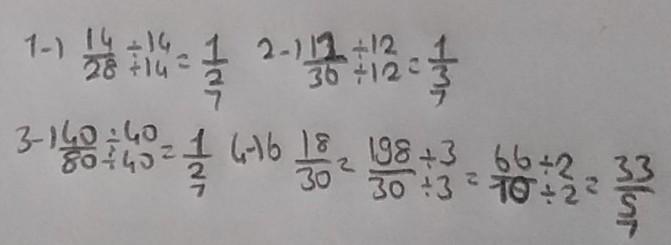 1-) 14/28 ÷14/÷14 = 1/2 2-) 12/36 ÷12/÷12 = 1/3
3-) 40/80 ÷40/÷40 = 1/2 4-) 6 18/30 = 198/30 ÷3/÷3 = 66/10 ÷2/÷2 = 33/5